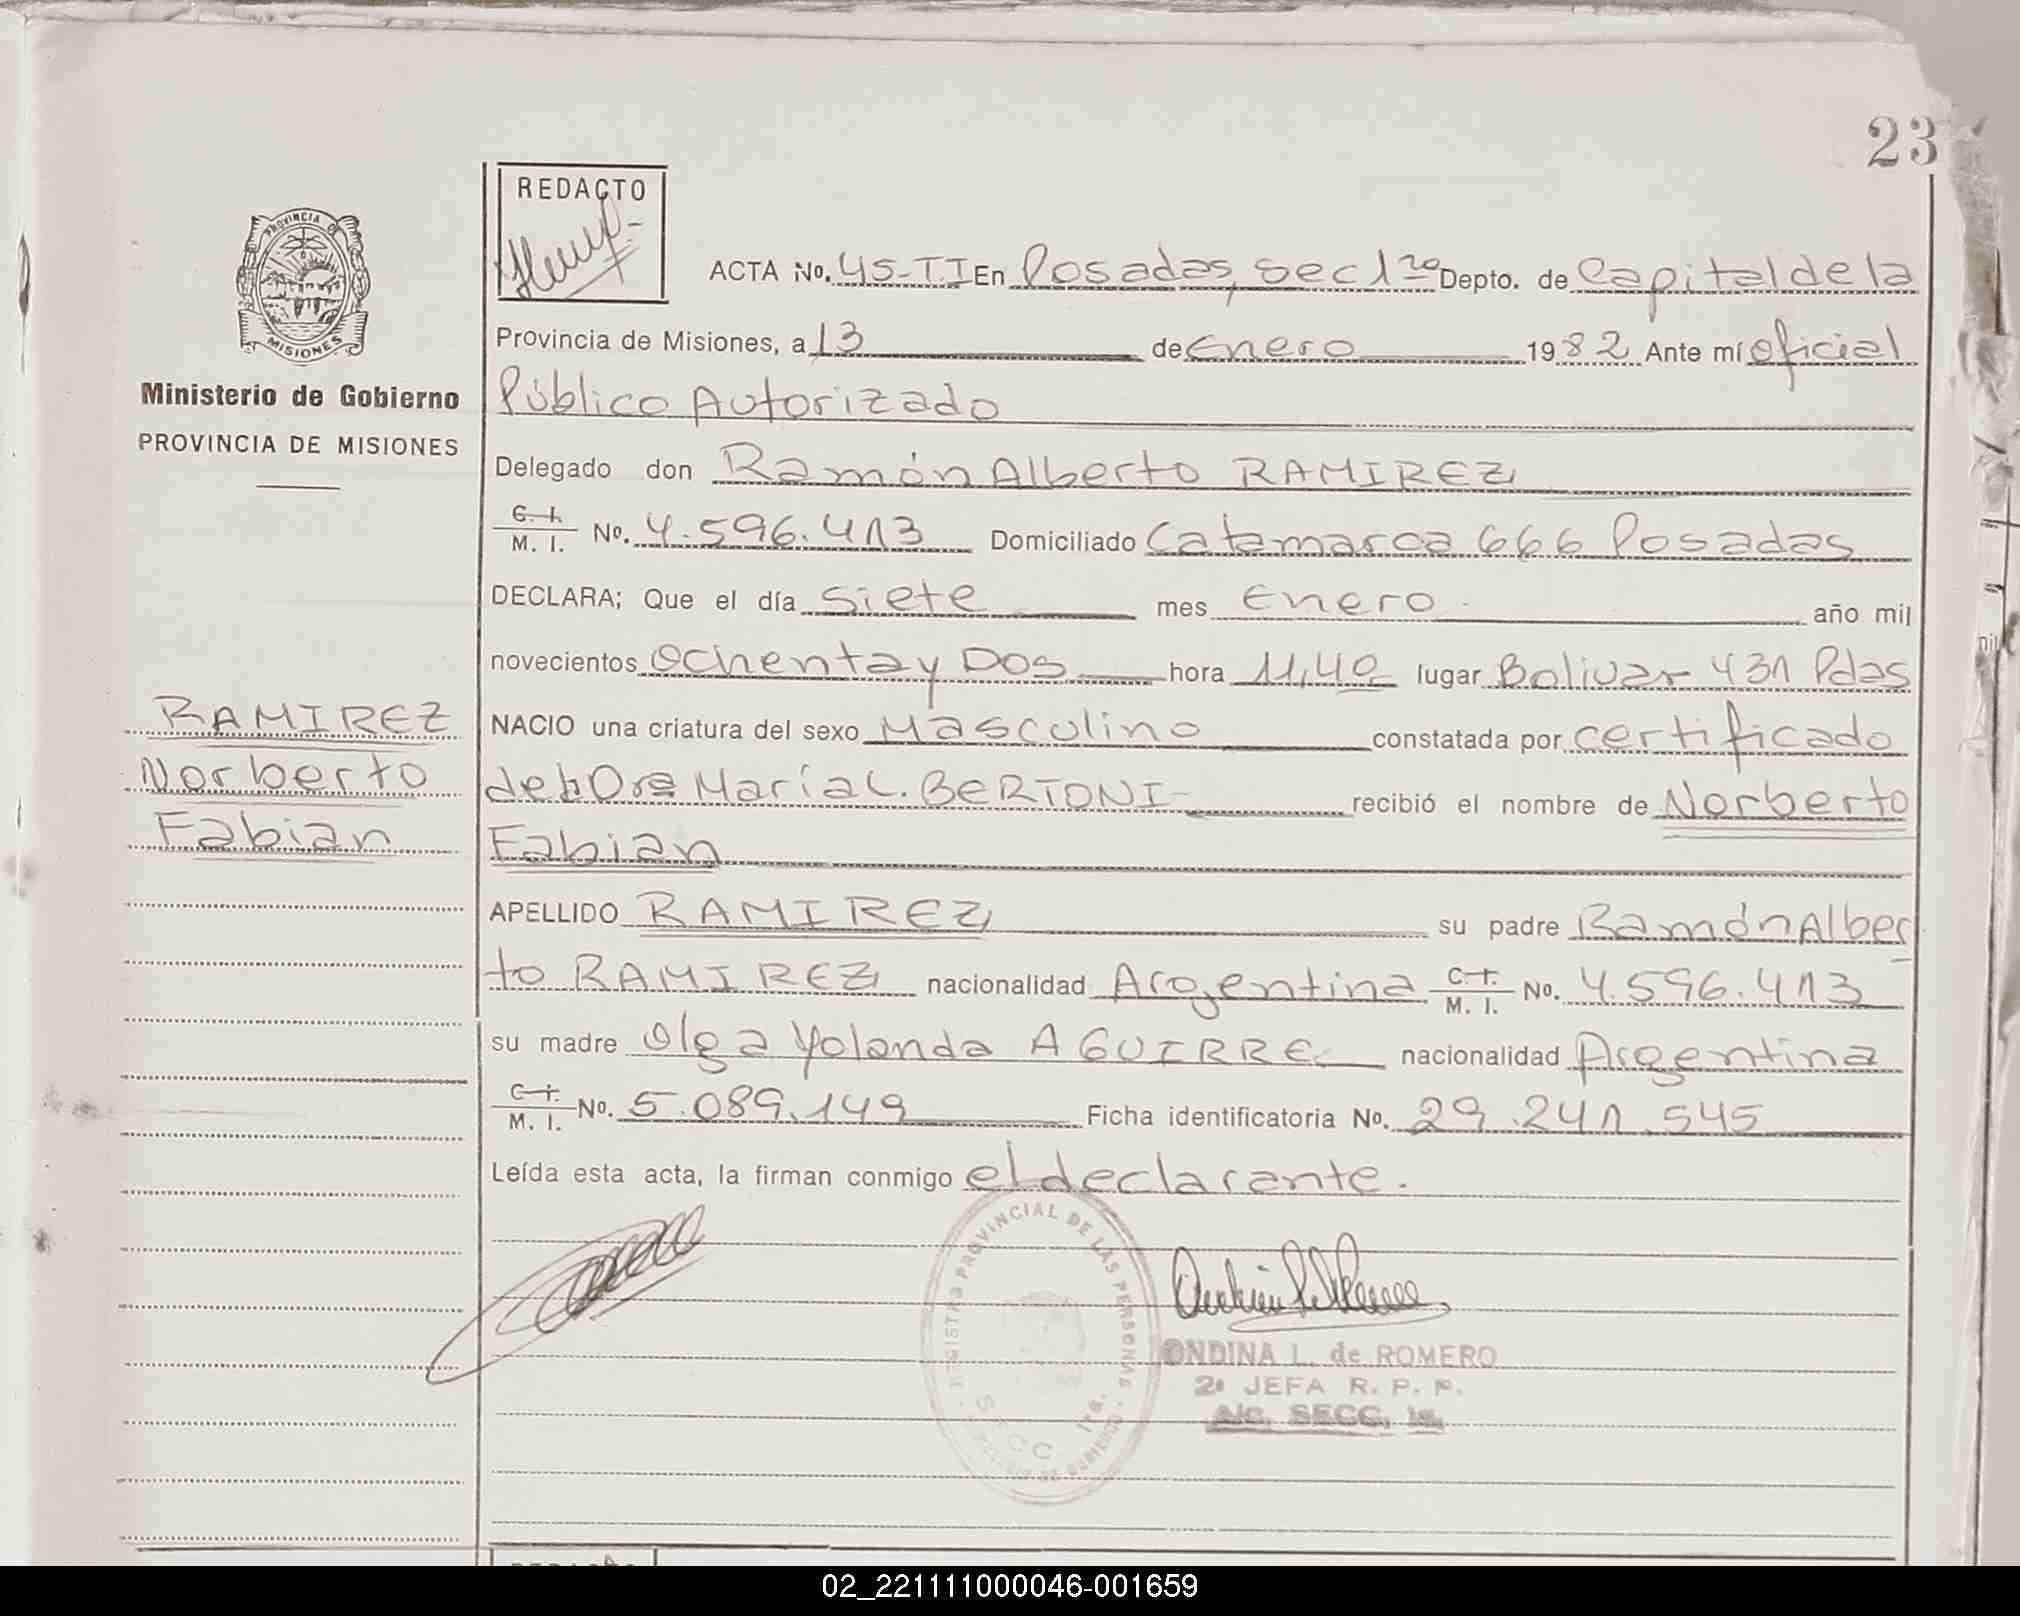 23
REDACTO
PROVINCIA DE
MISIONES
Ministerio de Gobierno
PROVINCIA DE MISIONES
RAMIREZ
Norberto
Fabian
ACTA No. 45-TI En Posadas, sec 1ra Depto. de Capital de la
Provincia de Misiones, a 13 de Enero 1982 Ante mí oficial
Público Autorizado
Delegado don Ramón Alberto RAMIREZ
C. I. M. I. No. 4.596.413 Domiciliado Catamarca 666 Posadas
DECLARA; Que el día siete mes Enero año mil
novecientos ochenta y Dos hora 11,40 lugar Bolivar 431 Pdas
NACIO una criatura del sexo Masculino constatada por certificado
de la Dra María L. BERTONI- recibió el nombre de Norberto
Fabian
APELLIDO RAMIREZ su padre Ramón Alber
to RAMIREZ nacionalidad Argentina C. I. M. I. No. 4.596.413
su madre Olga Yolanda AGUIRRE nacionalidad Argentina
C. I. M. I. No. 5.089.149 Ficha identificatoria No. 29.241.545
Leída esta acta, la firman conmigo el declarante.
REGISTRO PROVINCIAL DE LAS PERSONAS
SECC 1ra.
ONDINA L. de ROMERO
2a JEFA R. P. P.
A/c. SECC. 1a.
02_221111000046-001659